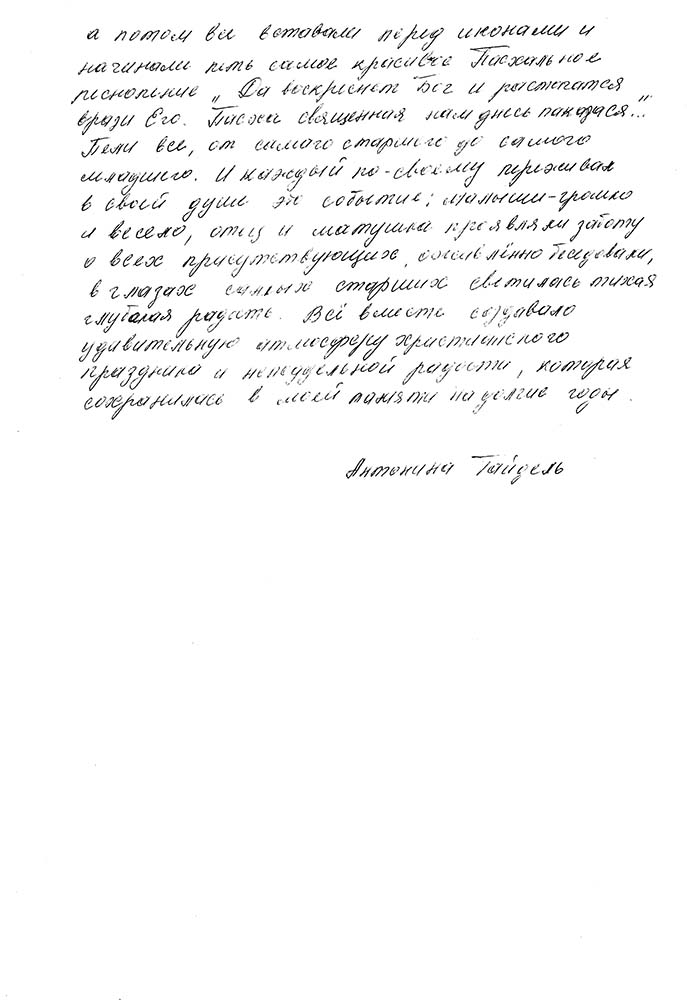 а потом все вставали перед иконами и
начинали петь самое красивое Пасхальное
песнопение „Да воскреснет Бог и расточатся
врази Его. Пасха священная нам днесь показася..."
Пели все, от самого старшего до самого
младшего. И каждый по-своему переживал
в своей душе это событие: малыши-громко
и весело, отец и матушка проявляли заботу
о всех присутствующих, оживлённо беседовали,
в глазах самых старших светилась тихая
глубокая радость. Всё вместе создавало
удивительную атмосферу христианского
праздника и неподдельной радости, которая
сохранилась в моей памяти на долгие годы.
Антонина Гайдель